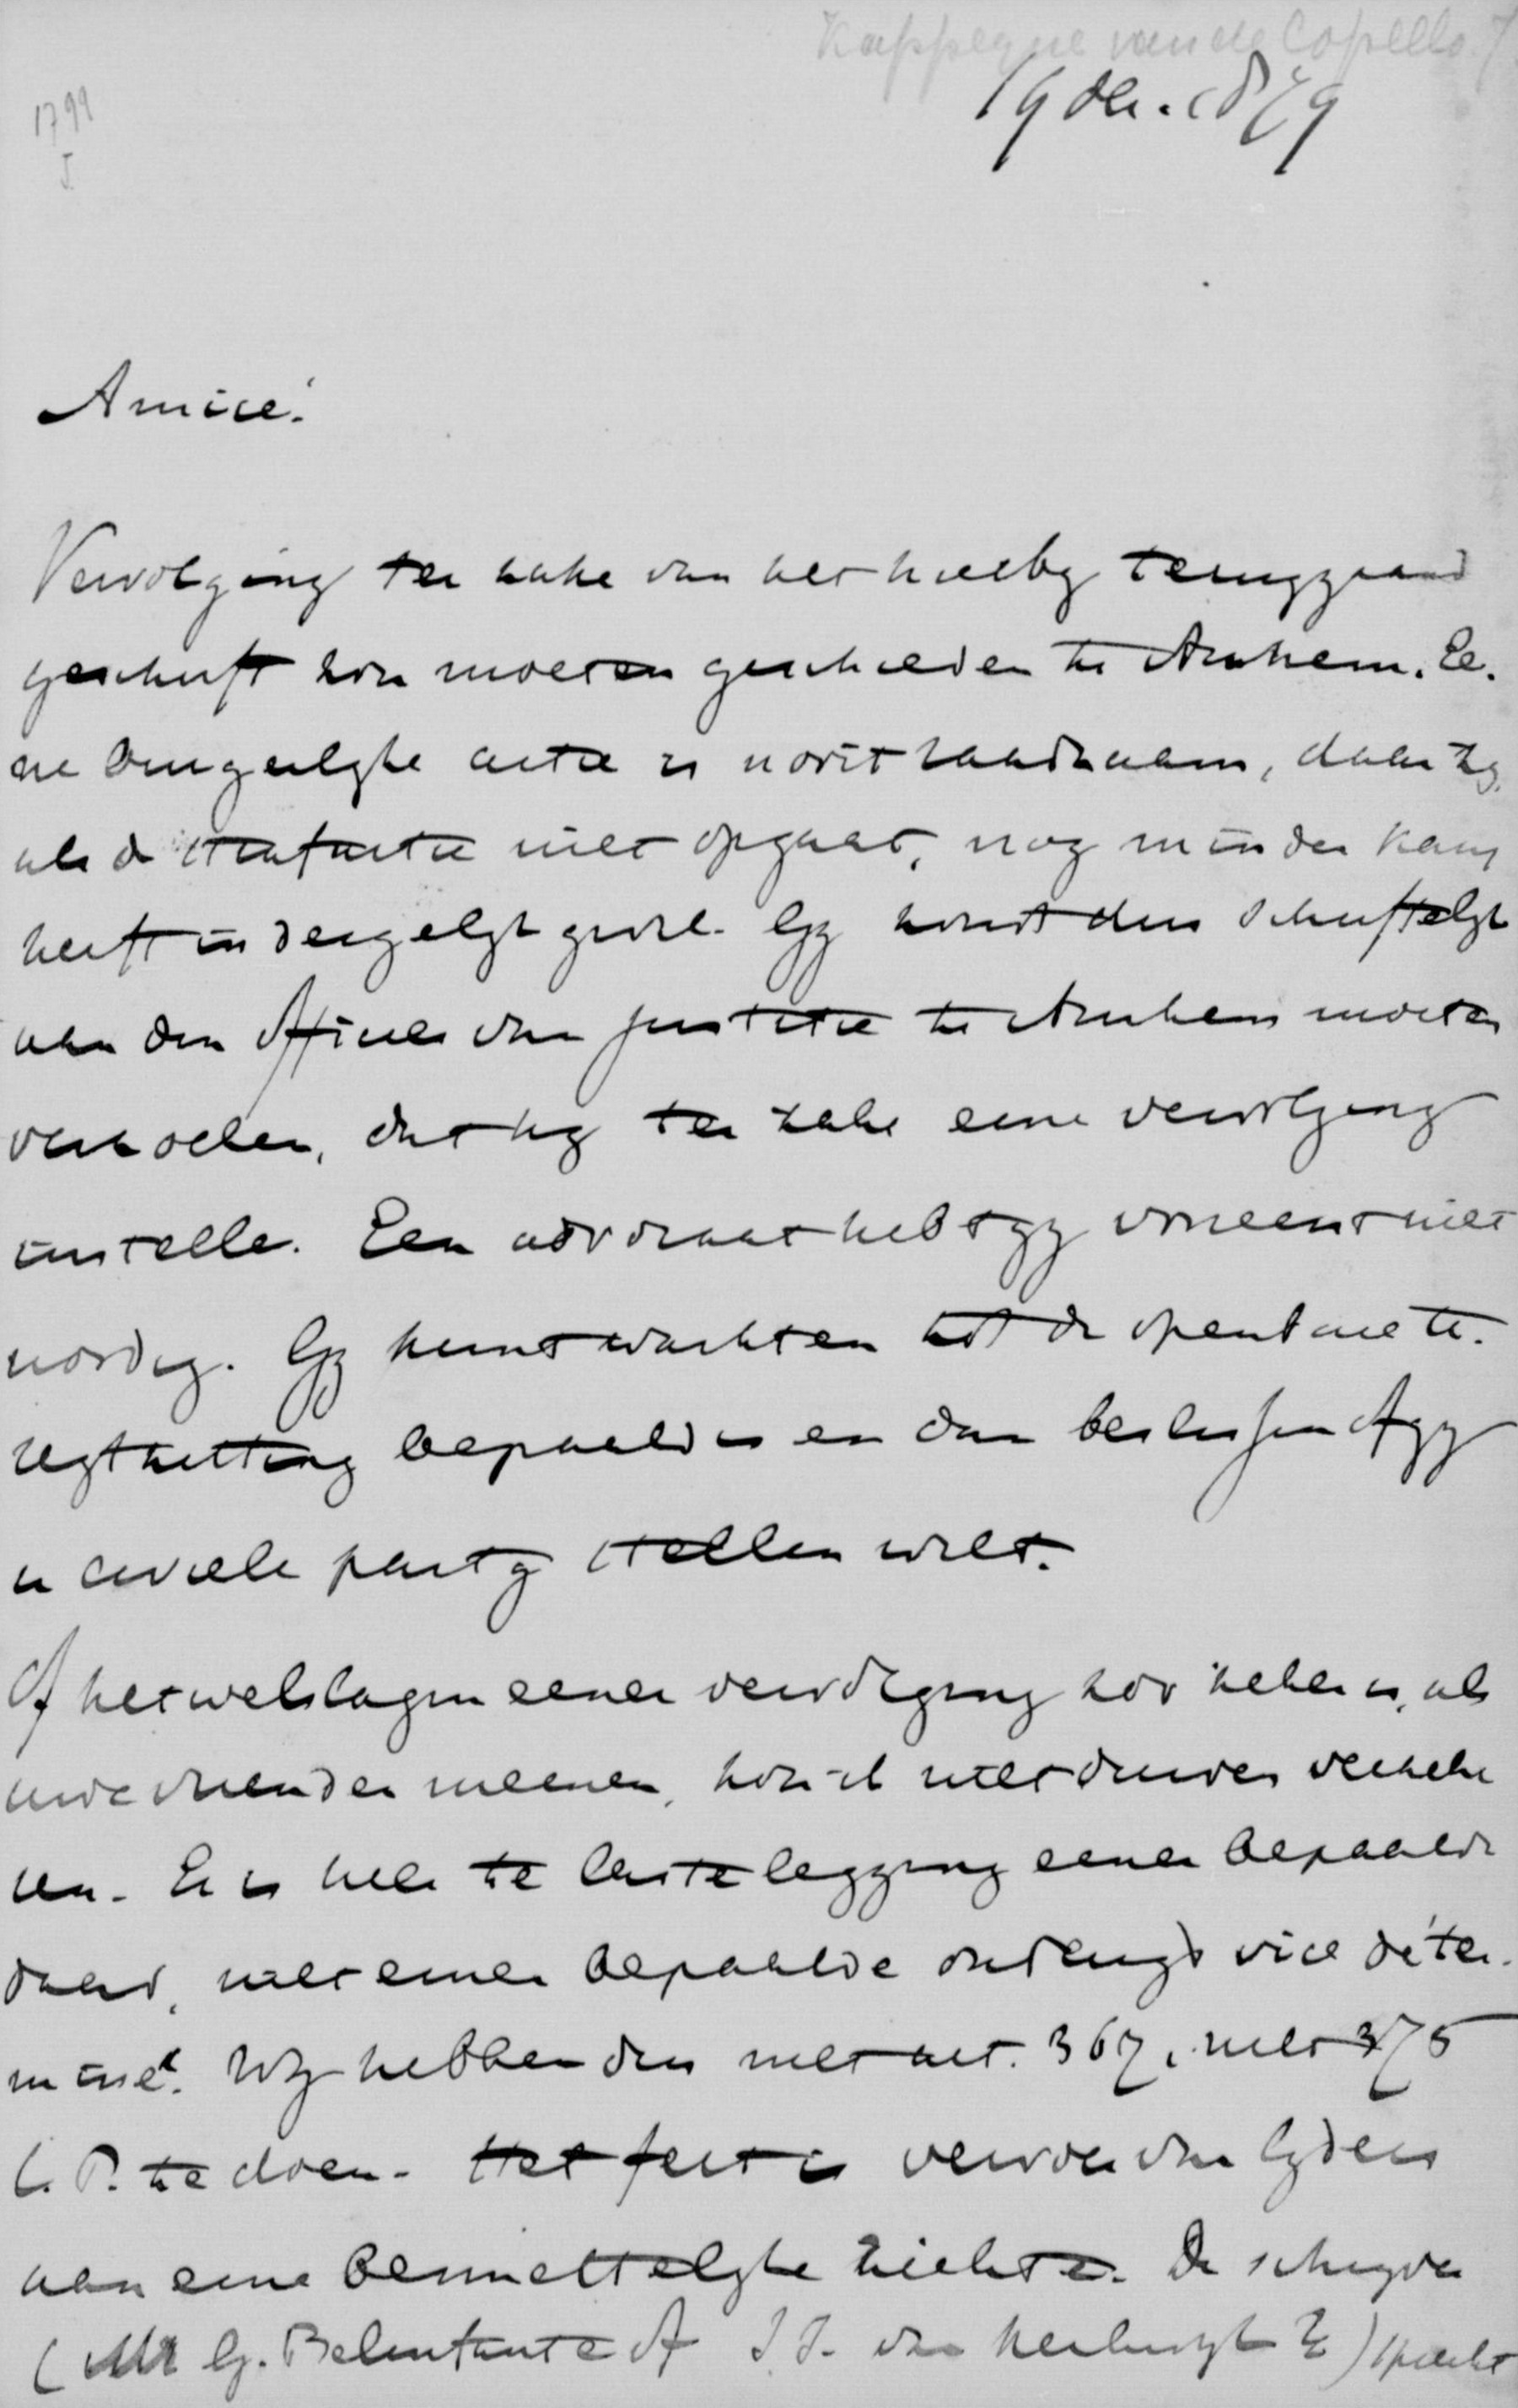 Kappeyne van de Copello
19 Dec. 1879
1799
Amice!
Vervolging ter zake van het hierby teruggaand
geschrift zou moeten geschieden te Arnhem. Ee-
ne burgerlyke actie is nooit raadzaam, daar zy,
als de strafactie niet opgaat, nog minder kans
heeft in dergelyk geval. Gy zoudt dus schriftelyk
aan den Officier van Justitie te Arnhem moeten
verzoeken, dat hy ter zake eene vervolging
instelle. Een advocaat hebt gy vooreerst niet
noodig. Gy kunt wachten tot de openbare te-
regtzitting bepaald is en dan beslissen of gy
u civiele party stellen wilt.
Of het welslagen eener vervolging zoo zeker is, als
uwe vrienden meenen, zou ik niet durven verzeke
ren. Er is hier te lastelegging eener bepaalde
daad, niet eener bepaalde ondeugd vice déter-
miné. Wy hebben dus met art. 367, niet 375
C. P. te doen. Het feit is vervoer van lyders
aan eene besmettelyke ziekte. De schryver
(Mr G. Belinfante of J. J. van Kerkwyk?) spreekt